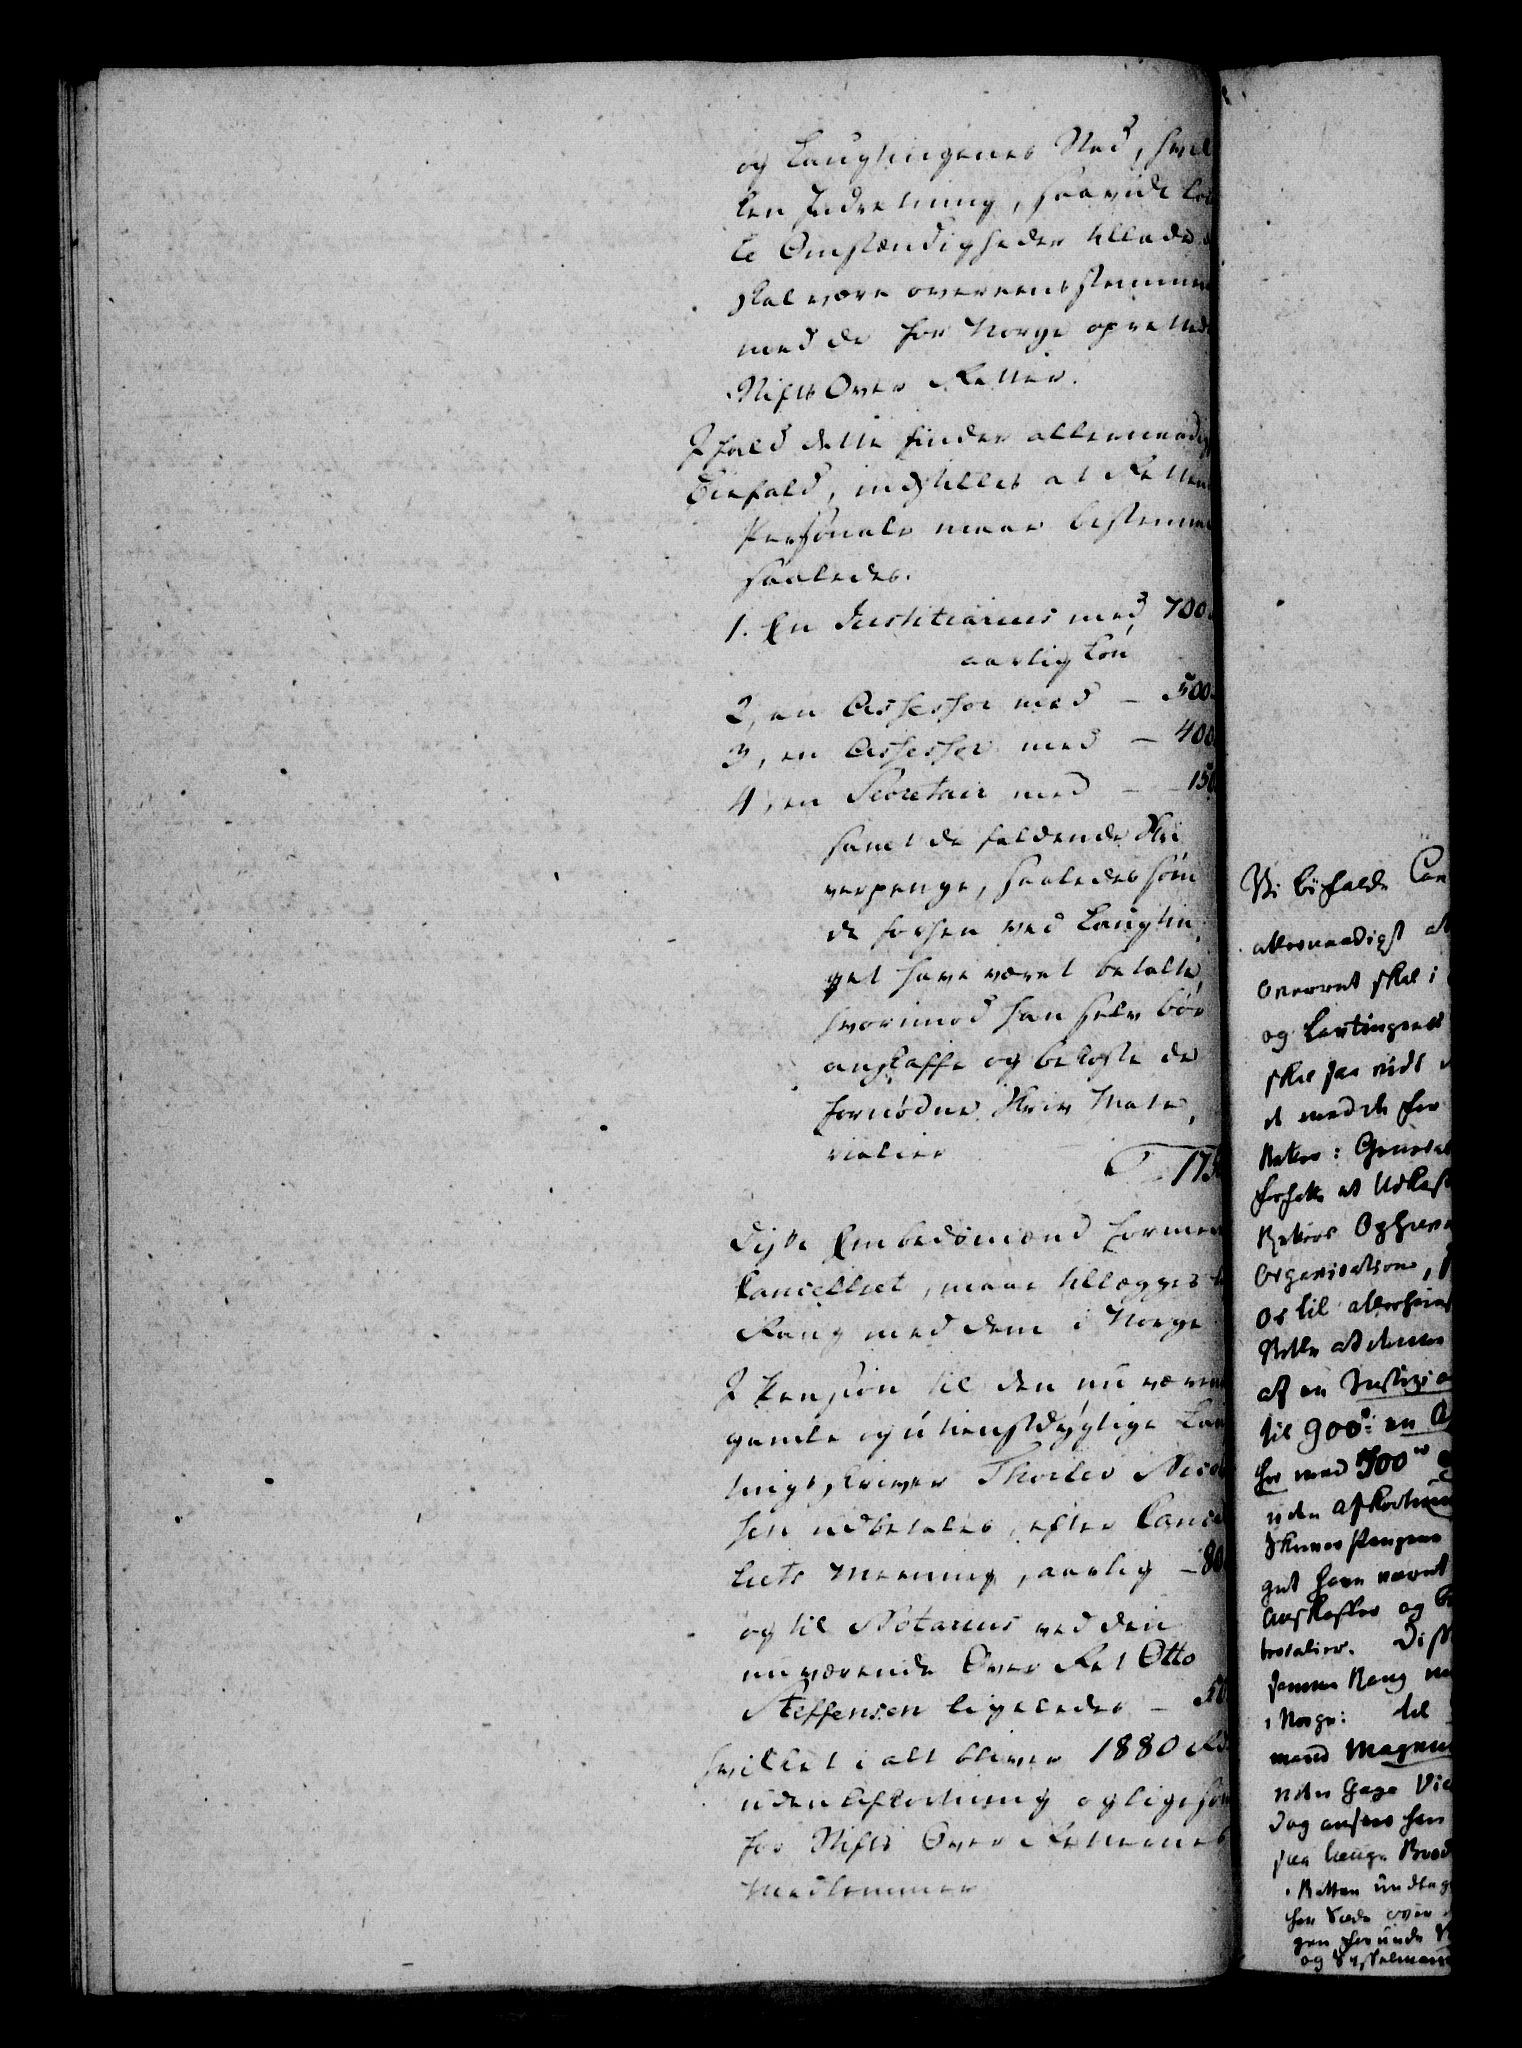 og Laugtingenes Sted, hvil
ken Indretning, saavidt loca
le Omstændigheder tillade d
skal være overeensstemmen
med de for Norge oprettede
Stifts Over Retter.
I fald dette finder allernaadigst
Biefald, indstilles at Rettens
Personale maae bestemmes
saaledes.
1. En Justitiarius med 700
aarlig Løn
2, en Assessor med – 500
3, en Assessor med – 400
4, en Secretair med – 150
samt de faldende Skri
verpenge, saaledes som
de forhen ved Laugtin,
get have været betalte,
hvorimod han selv bør
anskaffe og bekoste de
fornødne Skriv Mate,
rialier
175
Disse Embedsmænd formener
Cancelliet, maae tillægges
Rang med dem i Norge
I Pension til den nu værende
gamle og utienstdygtige Laug
tingsskriver Thorlev
sen udbetales, efter Cancel
liets Meening, aarlig – 80
og til Notarius ved den
nuværende Over Ret Otto
Steffensen ligeledes – 50
hvilket i alt bliver 1880 Rd
uden Afkortning og ligesom
for Stifts Over Retternes
Medlemmer
Vi bifalde Can
allernaadigst at
Overret skal i
og Lavtingets
skal saa vidt
med de for
Retter: General
forfatte et Udkast
Retters Ophæve
Organisation,
Os til allerhøieste
af en Justizi
til 900 en A
sor med 500
uden Afkortning
Skriver Pengene
get have været
Anskaffer og B
terialier. Diss
samme Rang m
i Norge: til
mand Magnus
Gage
dog ansees han
paa længe
Retten undtag
har Sæde over
og Sysselmænd